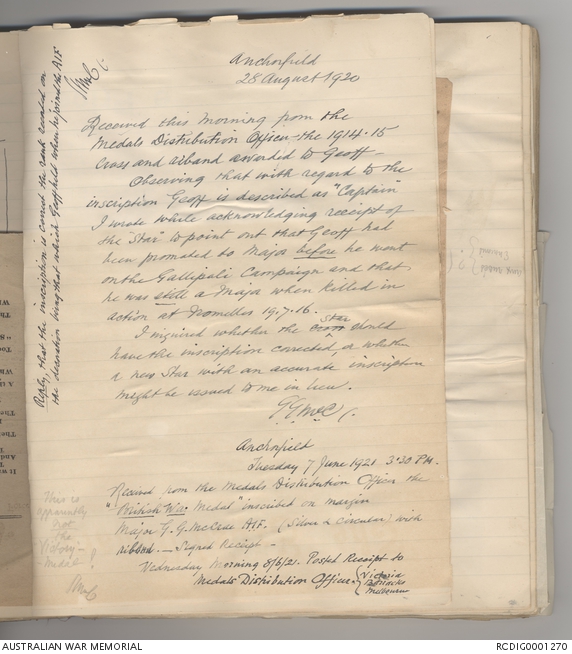 Anchorfield
28 August 1920
Received this morning from the
Medals Distribution Officer the 1914-15
Cross and riband awarded to Geoff-
Observing that with regard to the
inscription Geoff is described as "Captain
I wrote while acknowledging receipt of
the "Star" to point out that Geoff had
been promoted to Major before he went
on the Gallipoli Campaign and that
he was still a Major when killed in
action at Fromelles 19.7.16.
I inquired whether the Cross Star should
have the inscription corrected, or whether
a new Star with an accurate inscription
might be issued to me in lieu.
GGMcC/.
Anchorfield
Tuesday 7 June 1921 3.30 P.M.
Received from the Medals Distribution Officer the
"British War Medal" inscribed on margin
Major G. G. McCrae AIF. (Silver & circular) with
ribbon. - Signed Receipt -
Wednesday Morning 8/6/21. Posted Receipt to
Medals Distribution Officer
Victoria
Barracks
Melbourne
Reply, that the inscription is correct the rank recorded on
the decoration being that which Geoff held when he joined the AIF
This is
apparently
not
the
"Victory-
Medal"!
AUSTRALIAN WAR MEMORIAL
RCDIG0001270